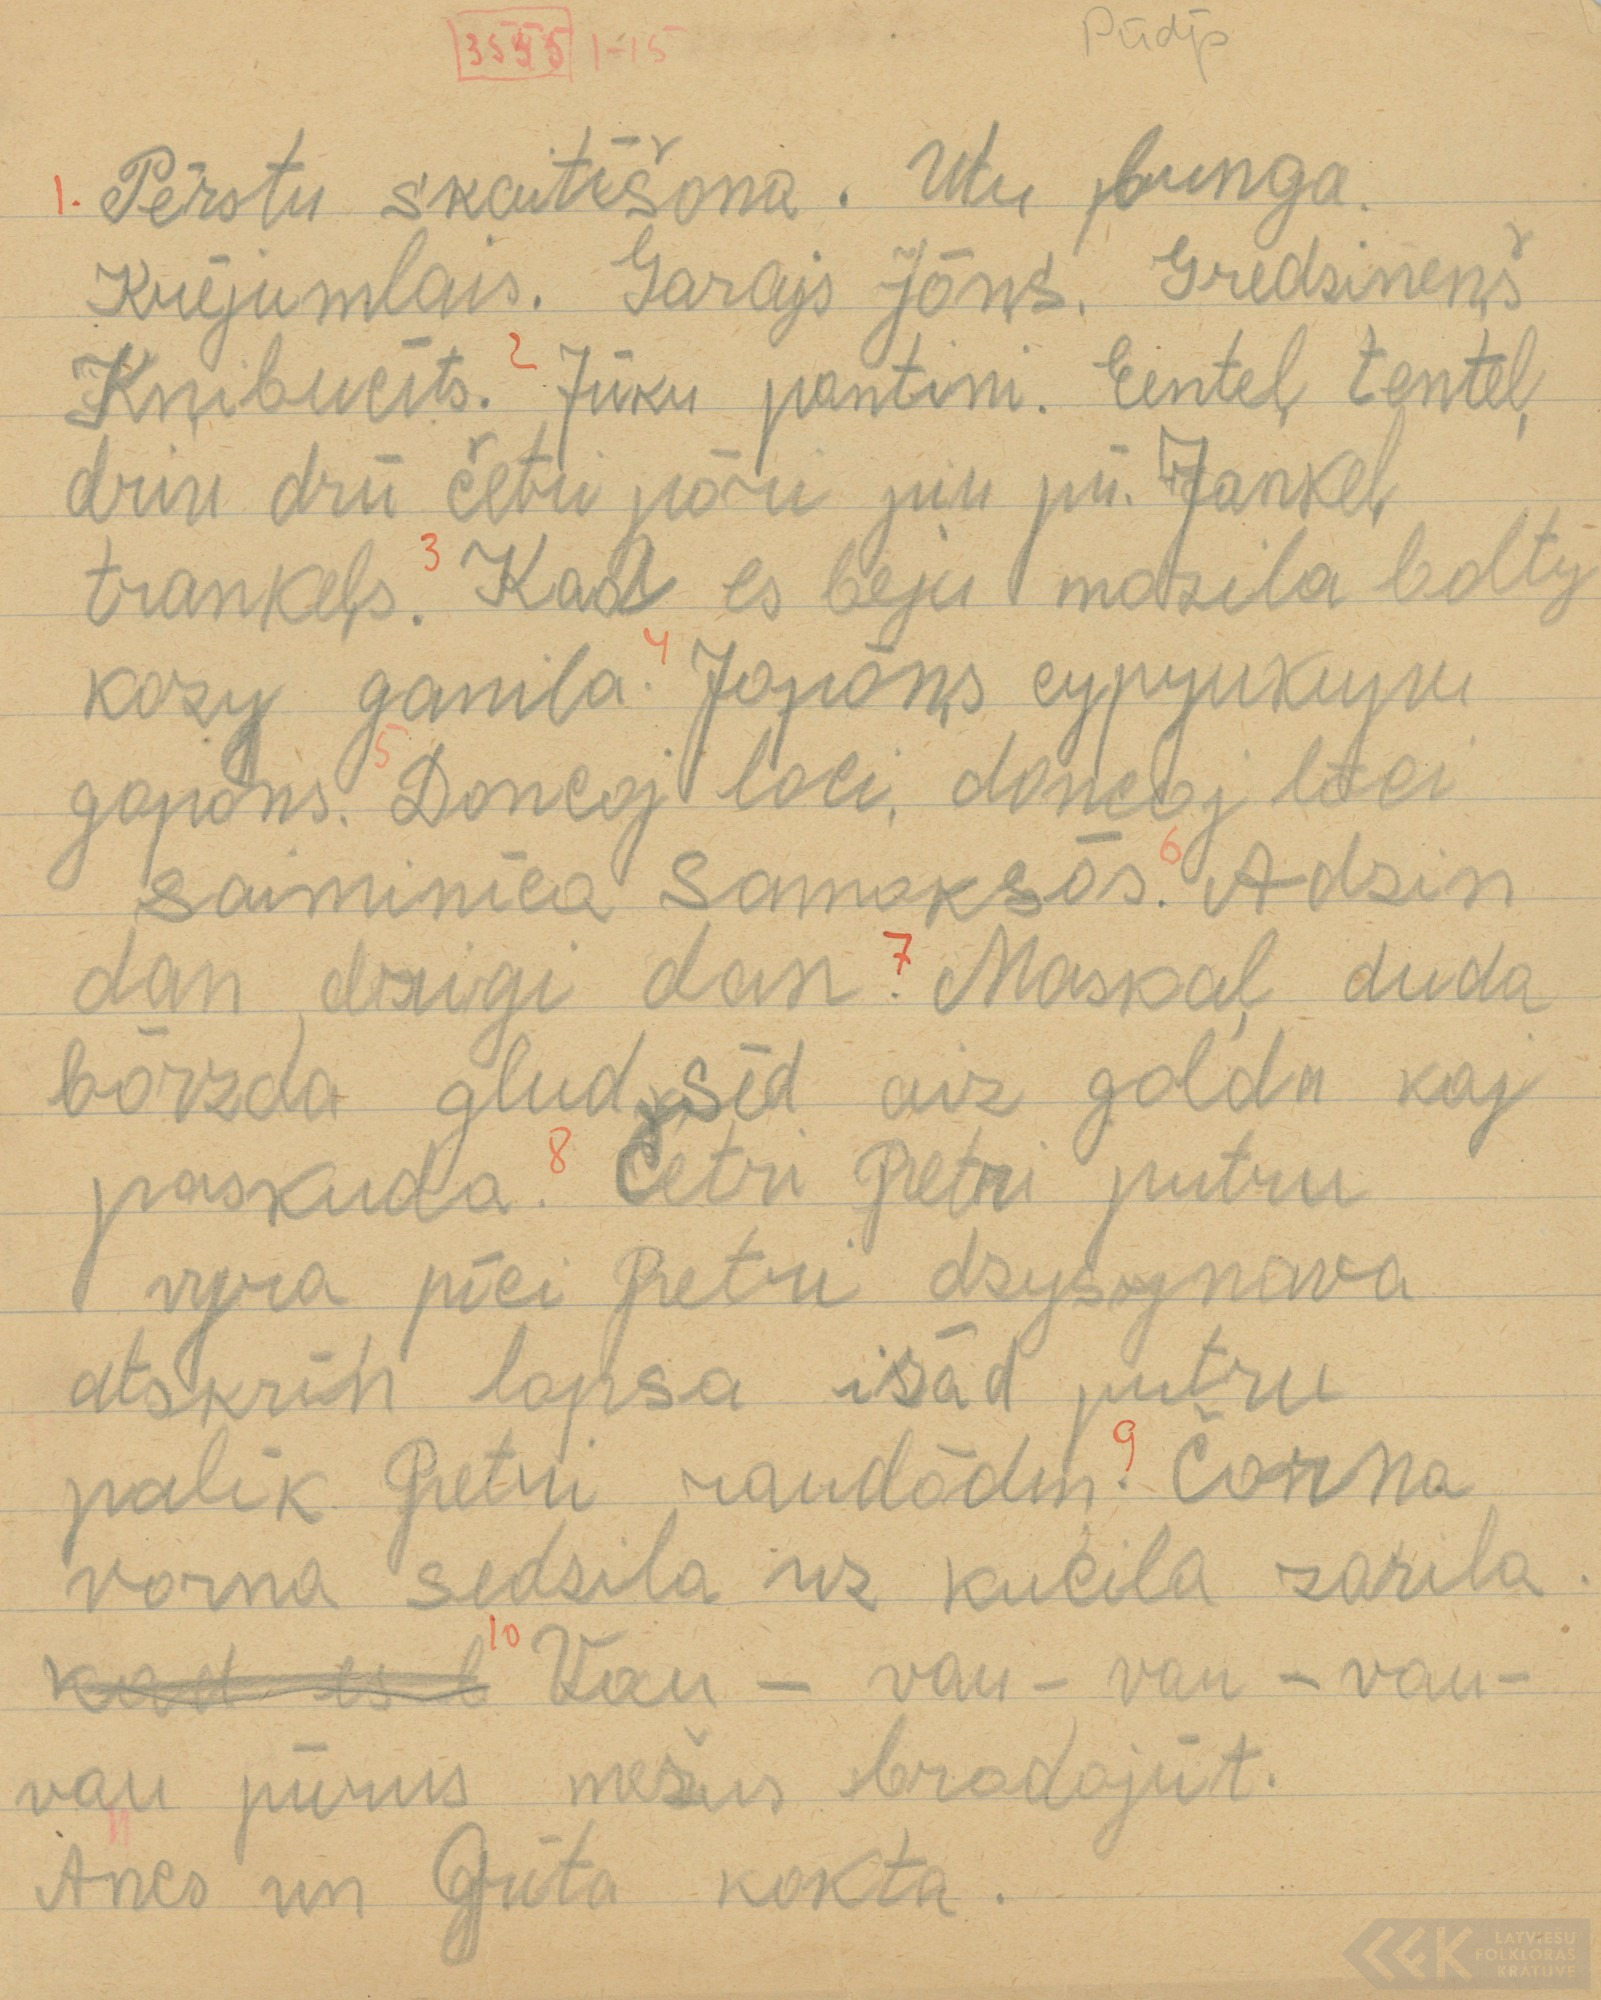 3545 1-15 Pūdp
1. Pērstu skaitēšona. Utu bunga.
Krējumlais. Garajs Jōņs. Gredzineņš
Kņibucīts. 2 Jūku pantini. Eenteļ tenteļ
driu drū četri pōri piu pū. Jankeļ
trankeļs. 3 Kad es beju mozila boltў
kozy ganila. 4 Jopōņs cypyukuyu
gopōns. 5 Doncoj loci, doncoj loci
saiminīca samoksōs. 6 Adzin
dan dzigi dan. 7 Maskaļ duda
bōrzda glud, sēd aiz golda kaj
paskuda. 8 Četri Petri putru
vyra pīci Petri dzysynova
atskrīn lopsa izād putru
palīk Petri raudōdm. 9 Čorna
vorna sedzila uz kučila zarila.
kad es b 10 Vau – vau – vau – vau –
vau pūrus mežus bradojūt.
11 Ancs un Grīta kokta.
LATVIEŠU
FOLKLORAS
KRĀTUVE